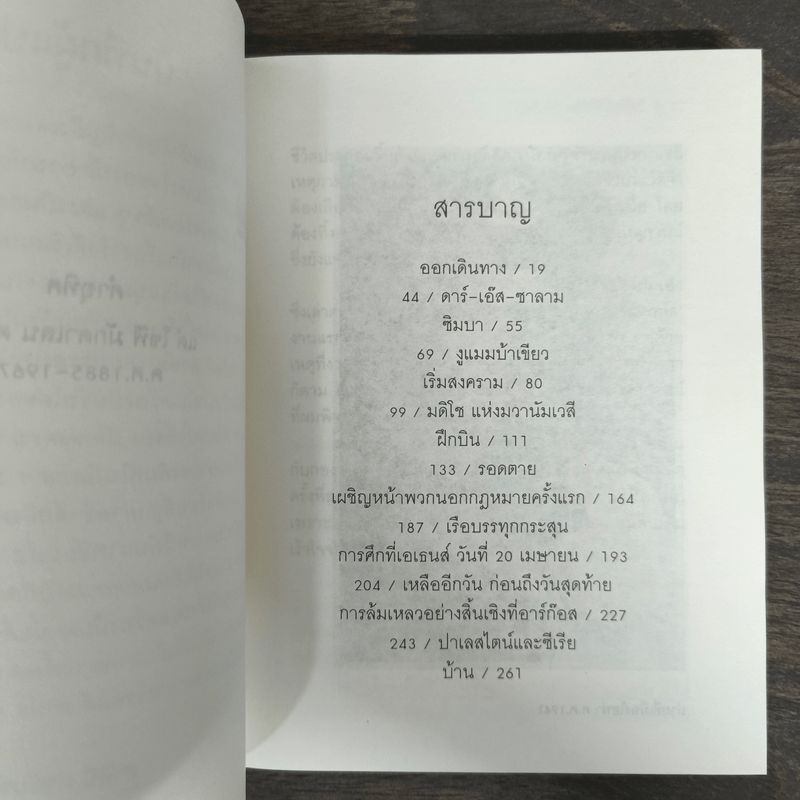 สารบาญ
ออกเดินทาง / 19
44 / ดาร์-เอ๊ส-ซาลาม
ซิมบา / 55
69 / งูแมมบ้าเขียว
เริ่มสงคราม / 80
99 / มดิโช แห่งมวานัมเวสี
ฝึกบิน / 111
133 / รอดตาย
เผชิญหน้าพวกนอกกฎหมายครั้งแรก / 164
187 / เรือบรรทุกกระสุน
การศึกที่เอเธนส์ วันที่ 20 เมษายน / 193
204 / เหลืออีกวัน ก่อนถึงวันสุดท้าย
การล้มเหลวอย่างสิ้นเชิงที่อาร์ก๊อส / 227
243 / ปาเลสไตน์และซีเรีย
บ้าน / 261